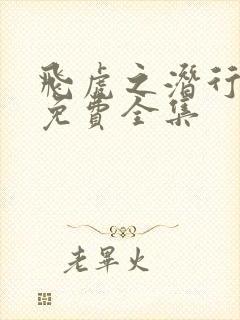 飛虎之潛行
免費全集
老畢火